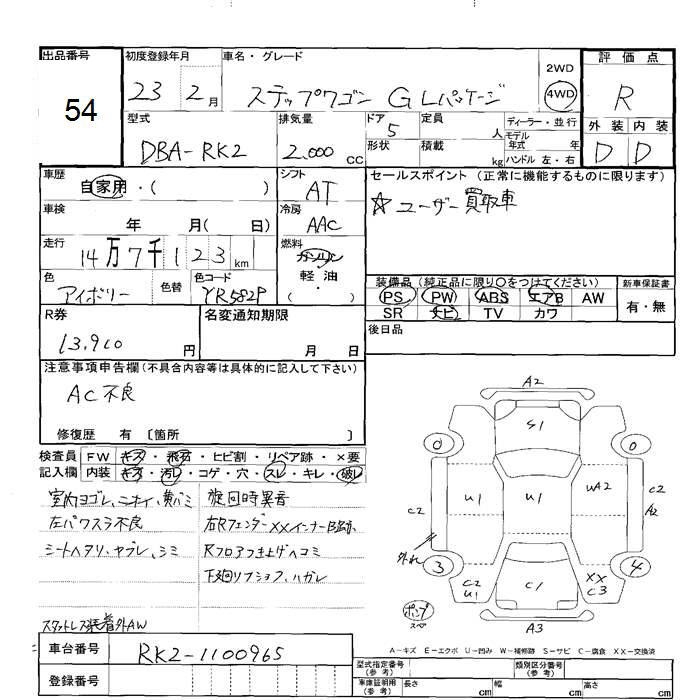 出品番号 54
初度登録年月 23 2月
車名・グレード ステップワゴン G Lパッケージ
2WD
4WD
評価点 R
外装 内装
D D
型式 DBA-RK2
排気量 2.000 CC
ドア 5
形状
定員 人
積載 kg
ディーラー・並行
モデル年式 年
ハンドル 左・右
車歴 自家用・( )
シフト AT
車検 年 月( 日)
冷房 AAC
走行 14万7千123km
燃料 ガソリン
軽・油
( )
色 アイボリー 色替
色コード YR582P
セールスポイント (正常に機能するものに限ります)
☆ユーザー買取車
装備品 (純正品に限り○をつけてください)
PS PW ABS エアB AW
SR ナビ TV カワ
新車保証書
有・無
後日品
R券 13.910 円
名変通知期限 月 日
注意事項申告欄(不具合内容等は具体的に記入して下さい)
AC不良
修復歴 有 〔箇所 〕
検査員記入欄
FW キズ・飛石・ヒビ割・リペア跡・×要
内装 キズ・汚レ・コゲ・穴・スレ・キレ・破レ
室内ヨゴレ、ニオイ、黄バミ
左パワスラ不良
シートヘタリ、ヤブレ、シミ
スタットレス装着外AW
旋回時異音
右Rフェンダー××インナーB跡.
Rフロアつき上げヘコミ
下廻リサビ
A2
S1
0 0
U1 U1 UA2
C2
C2
A2
外れ
3 4
C2
U1
C1
XX
C3
A3
ポンプ
スペ
A-キズ E-エクボ U-凹み W-補修跡 S-サビ C-腐食 XX-交換済
車台番号 RK2-1100965
登録番号
型式指定番号(参考)
類別区分番号(参考)
車庫証明用(参考) 長さ cm 幅 cm 高さ cm